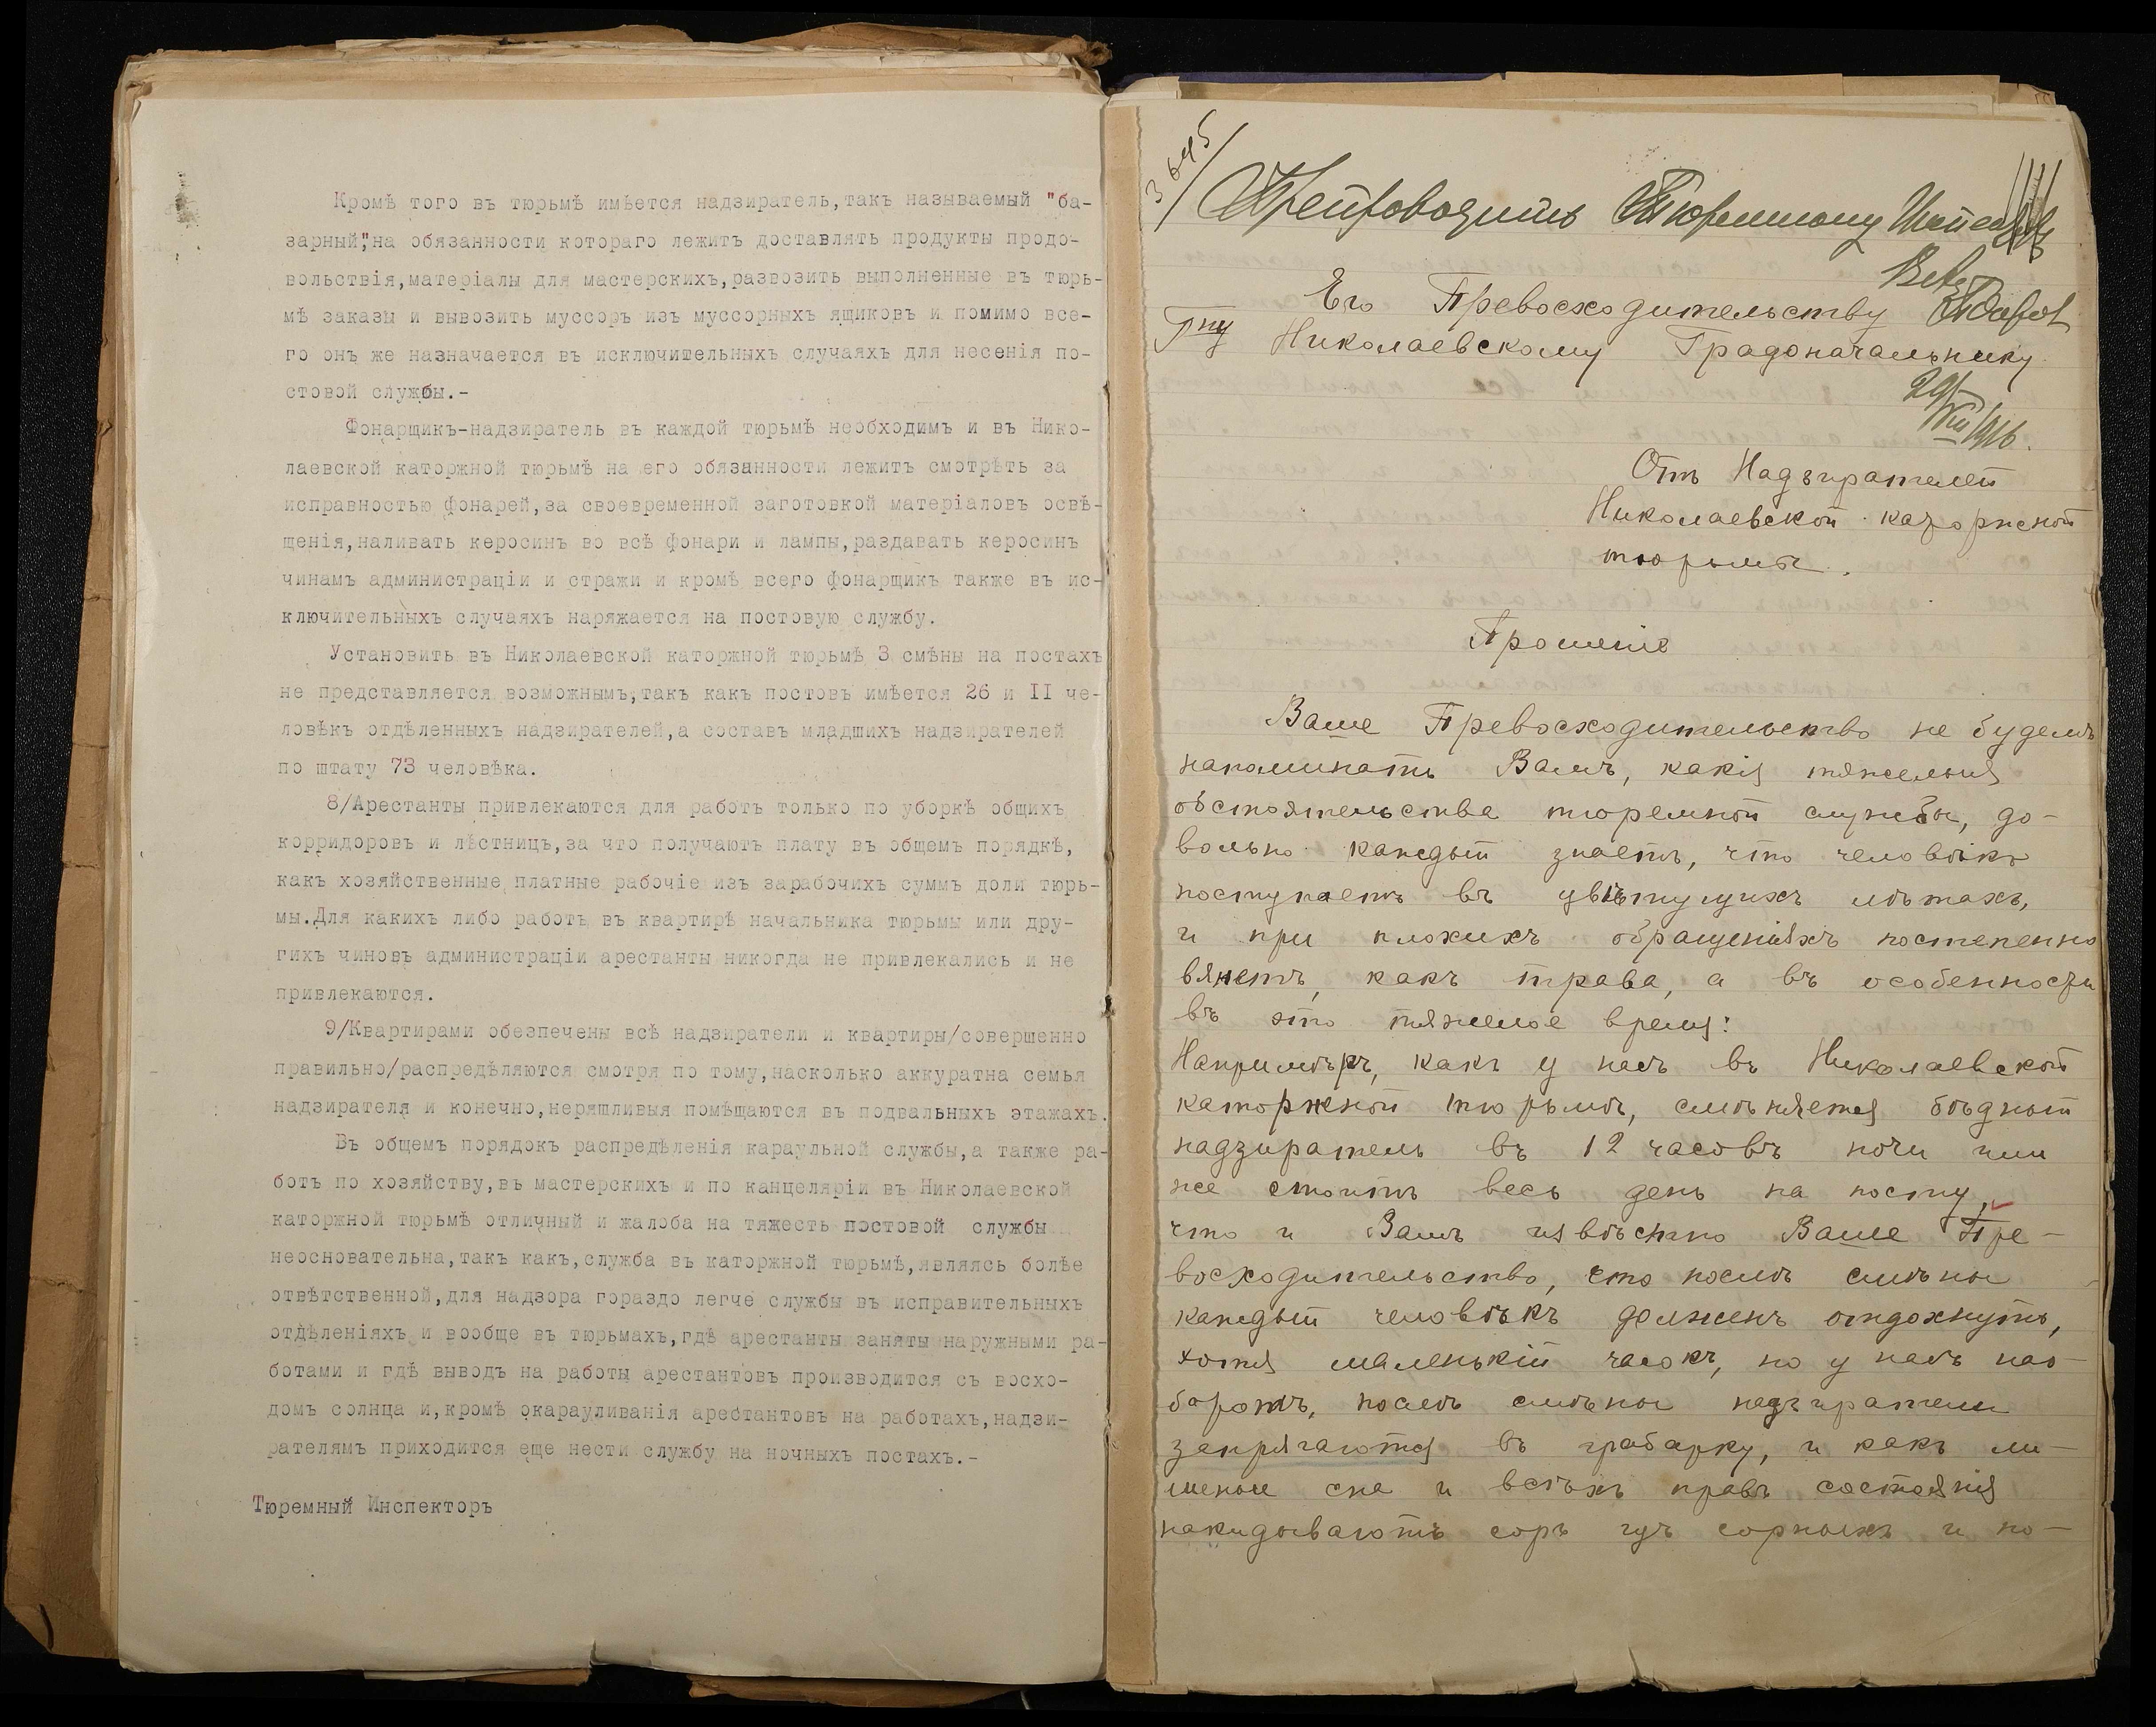 Кромѣ того въ тюрьмѣ имѣется надзиратель,такъ называемый "ба-
зарный",на обязанности котораго лежитъ доставлять продукты продо-
вольствія,матеріалы для мастерскихъ,развозить выполненные въ тюрь-
мѣ заказы и вывозить муссоръ изъ муссорныхъ ящиковъ и помимо все-
го онъ же назначается въ исключительныхъ случаяхъ для несенія по-
стовой службы.-
Фонарщикъ-надзиратель въ каждой тюрьмѣ необходимъ и въ Нико-
лаевской каторжной тюрьмѣ на его обязанности лежитъ смотрѣть за
исправностью фонарей,за своевременной заготовкой матеріаловъ освѣ-
щенія,наливать керосинъ во всѣ фонари и лампы,раздавать керосинъ
чинамъ администраціи и стражи и кромѣ всего фонарщикъ также въ ис-
ключительныхъ случаяхъ наряжается на постовую службу.
Установить въ Николаевской каторжной тюрьмѣ 3 смѣны на постахъ
не представляется возможнымъ,такъ какъ постовъ имѣется 26 и II че-
ловѣкъ отдѣленныхъ надзирателей,а составъ младшихъ надзирателей
по штату 73 человѣка.
8/Арестанты привлекаются для работъ только по уборкѣ общихъ
корридоровъ и лѣстницъ,за что получаютъ плату въ общемъ порядкѣ,
какъ хозяйственные платные рабочіе изъ зарабочихъ суммъ доли тюрь-
мы.Для какихъ либо работъ въ квартирѣ начальника тюрьмы или дру-
гихъ чиновъ администраціи арестанты никогда не привлекались и не
привлекаются.
9/Квартирами обезпечены всѣ надзиратели и квартиры/совершенно
правильно/распредѣляются смотря по тому,насколько аккуратна семья
надзирателя и конечно,неряшливыя помѣщаются въ подвальныхъ этажахъ.
Въ общемъ порядокъ распредѣленія караульной службы,а также ра-
ботъ по хозяйству,въ мастерскихъ и по канцеляріи въ Николаевской
каторжной тюрьмѣ отличный и жалоба на тяжесть постовой службы
неосновательна,такъ какъ,служба въ каторжной тюрьмѣ,являясь болѣе
отвѣтственной,для надзора гораздо легче службы въ исправительныхъ
отдѣленіяхъ и вообще въ тюрьмахъ,гдѣ арестанты заняты наружными ра-
ботами и гдѣ выводъ на работы арестантовъ производится съ восхо-
домъ солнца и,кромѣ окарауливанія арестантовъ на работахъ,надзи-
рателямъ приходится еще нести службу на ночныхъ постахъ.-
Тюремный Инспекторъ
3645
Препроводить Тюремному
Его Превосходительству
Гну Николаевскому Градоначальнику
29/VII/1916.
Отъ Надзирателей
Николаевской каторжной
тюрьмы.
Прошеніе
Ваше Превосходительство не будемъ
напоминать Вамъ, какія тяжелыя
обстоятельства тюремной службы, до-
вольно каждый знаетъ, что человѣкъ
поступаетъ въ цвѣтущихъ лѣтахъ,
и при плохихъ обращеніяхъ постепенно
вянетъ, какъ трава, а въ особенности
въ это тяжелое время:
Напримѣръ, какъ у насъ въ Николаевской
каторжной тюрьмѣ, смѣняется бѣдный
надзиратель въ 12 часовъ ночи или
же стоитъ весь день на посту,
что и Вамъ извѣстно Ваше Пре-
восходительство, что послѣ смѣны
каждый человѣкъ долженъ отдохнуть,
хотя маленькій часокъ, но у насъ нао-
боротъ, послѣ смѣны надзиратели
запрягаются въ грабарку, и какъ ли-
шеные сна и всѣхъ правъ состоянія
накидываютъ соръ изъ сорныхъ и по-